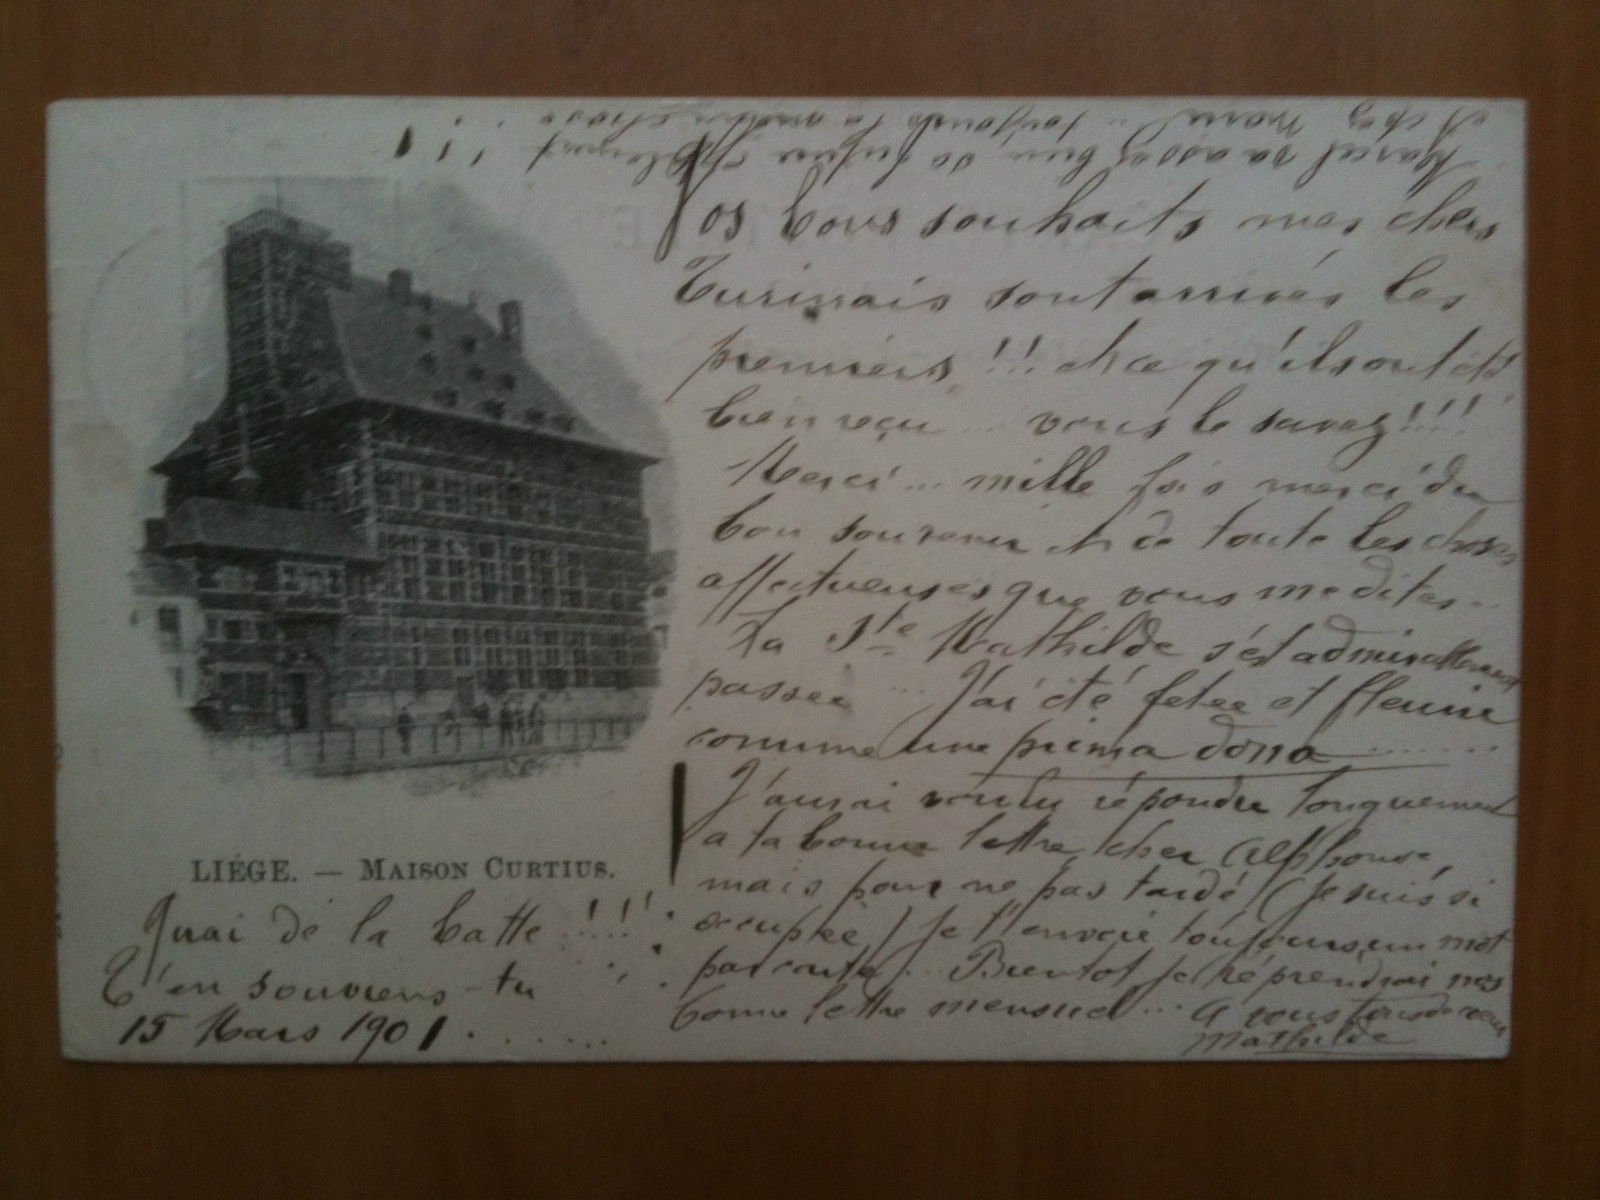 Vos bons souhaits mes chers
Turinais sont arrivés les
premiers !!! et ce qu'ils ont été
bien reçu ... vous le savez !!!!
Merci ... mille fois merci du
bon souvenir et de toute les choses
affectueuses que vous me dites ..
La Ste Mathilde s'est admirablement
passée ... J'ai été fetée et fleurie
comme une prima dona ........
J'aurai voulu répondre longuement
a ta bonne lettre cher Alphonse,
mais pour ne pas tardé (je suis si
occupée) je t'envoie toujours un mot
par carte ... Bientot je réprendrai nos
bonne lettre mensuel ... A vous tous de cœur
Mathilde
Marcel va assez bien se
et chez ... toujours la même chose
LIÉGE. — MAISON CURTIUS.
Quai de la batte !!!!
T'en souviens-tu
15 Mars 1901 . . . . . .